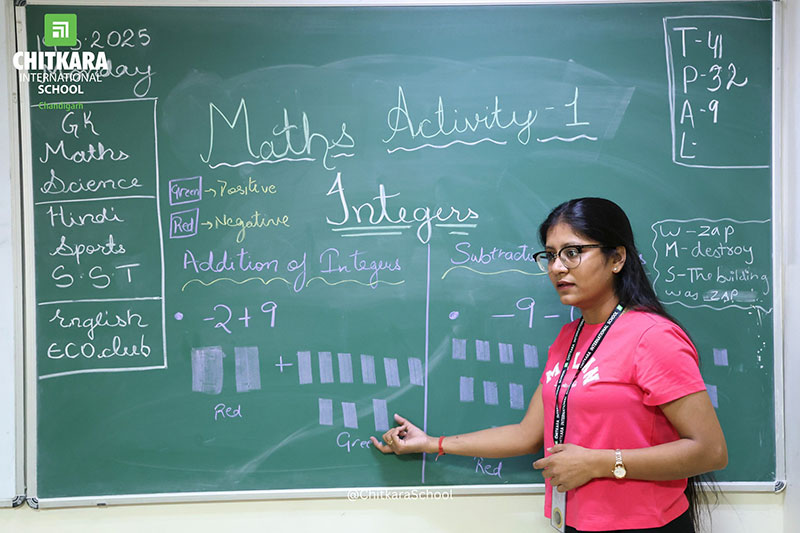 2025
CHITKARA
INTERNATIONAL
SCHOOL
Chandigarh
GK
Maths
Science
Hindi
Sports
S.S.T
English
ECO.club
Maths Activity-1
Green → Positive
Red → Negative
Integers
Addition of Integers
• -2+9
+
Red
• -9-
Red
T-41
P-32
A-9
L-
W-zap
M-destroy
S-The building
was zap
@ChitkaraSchool